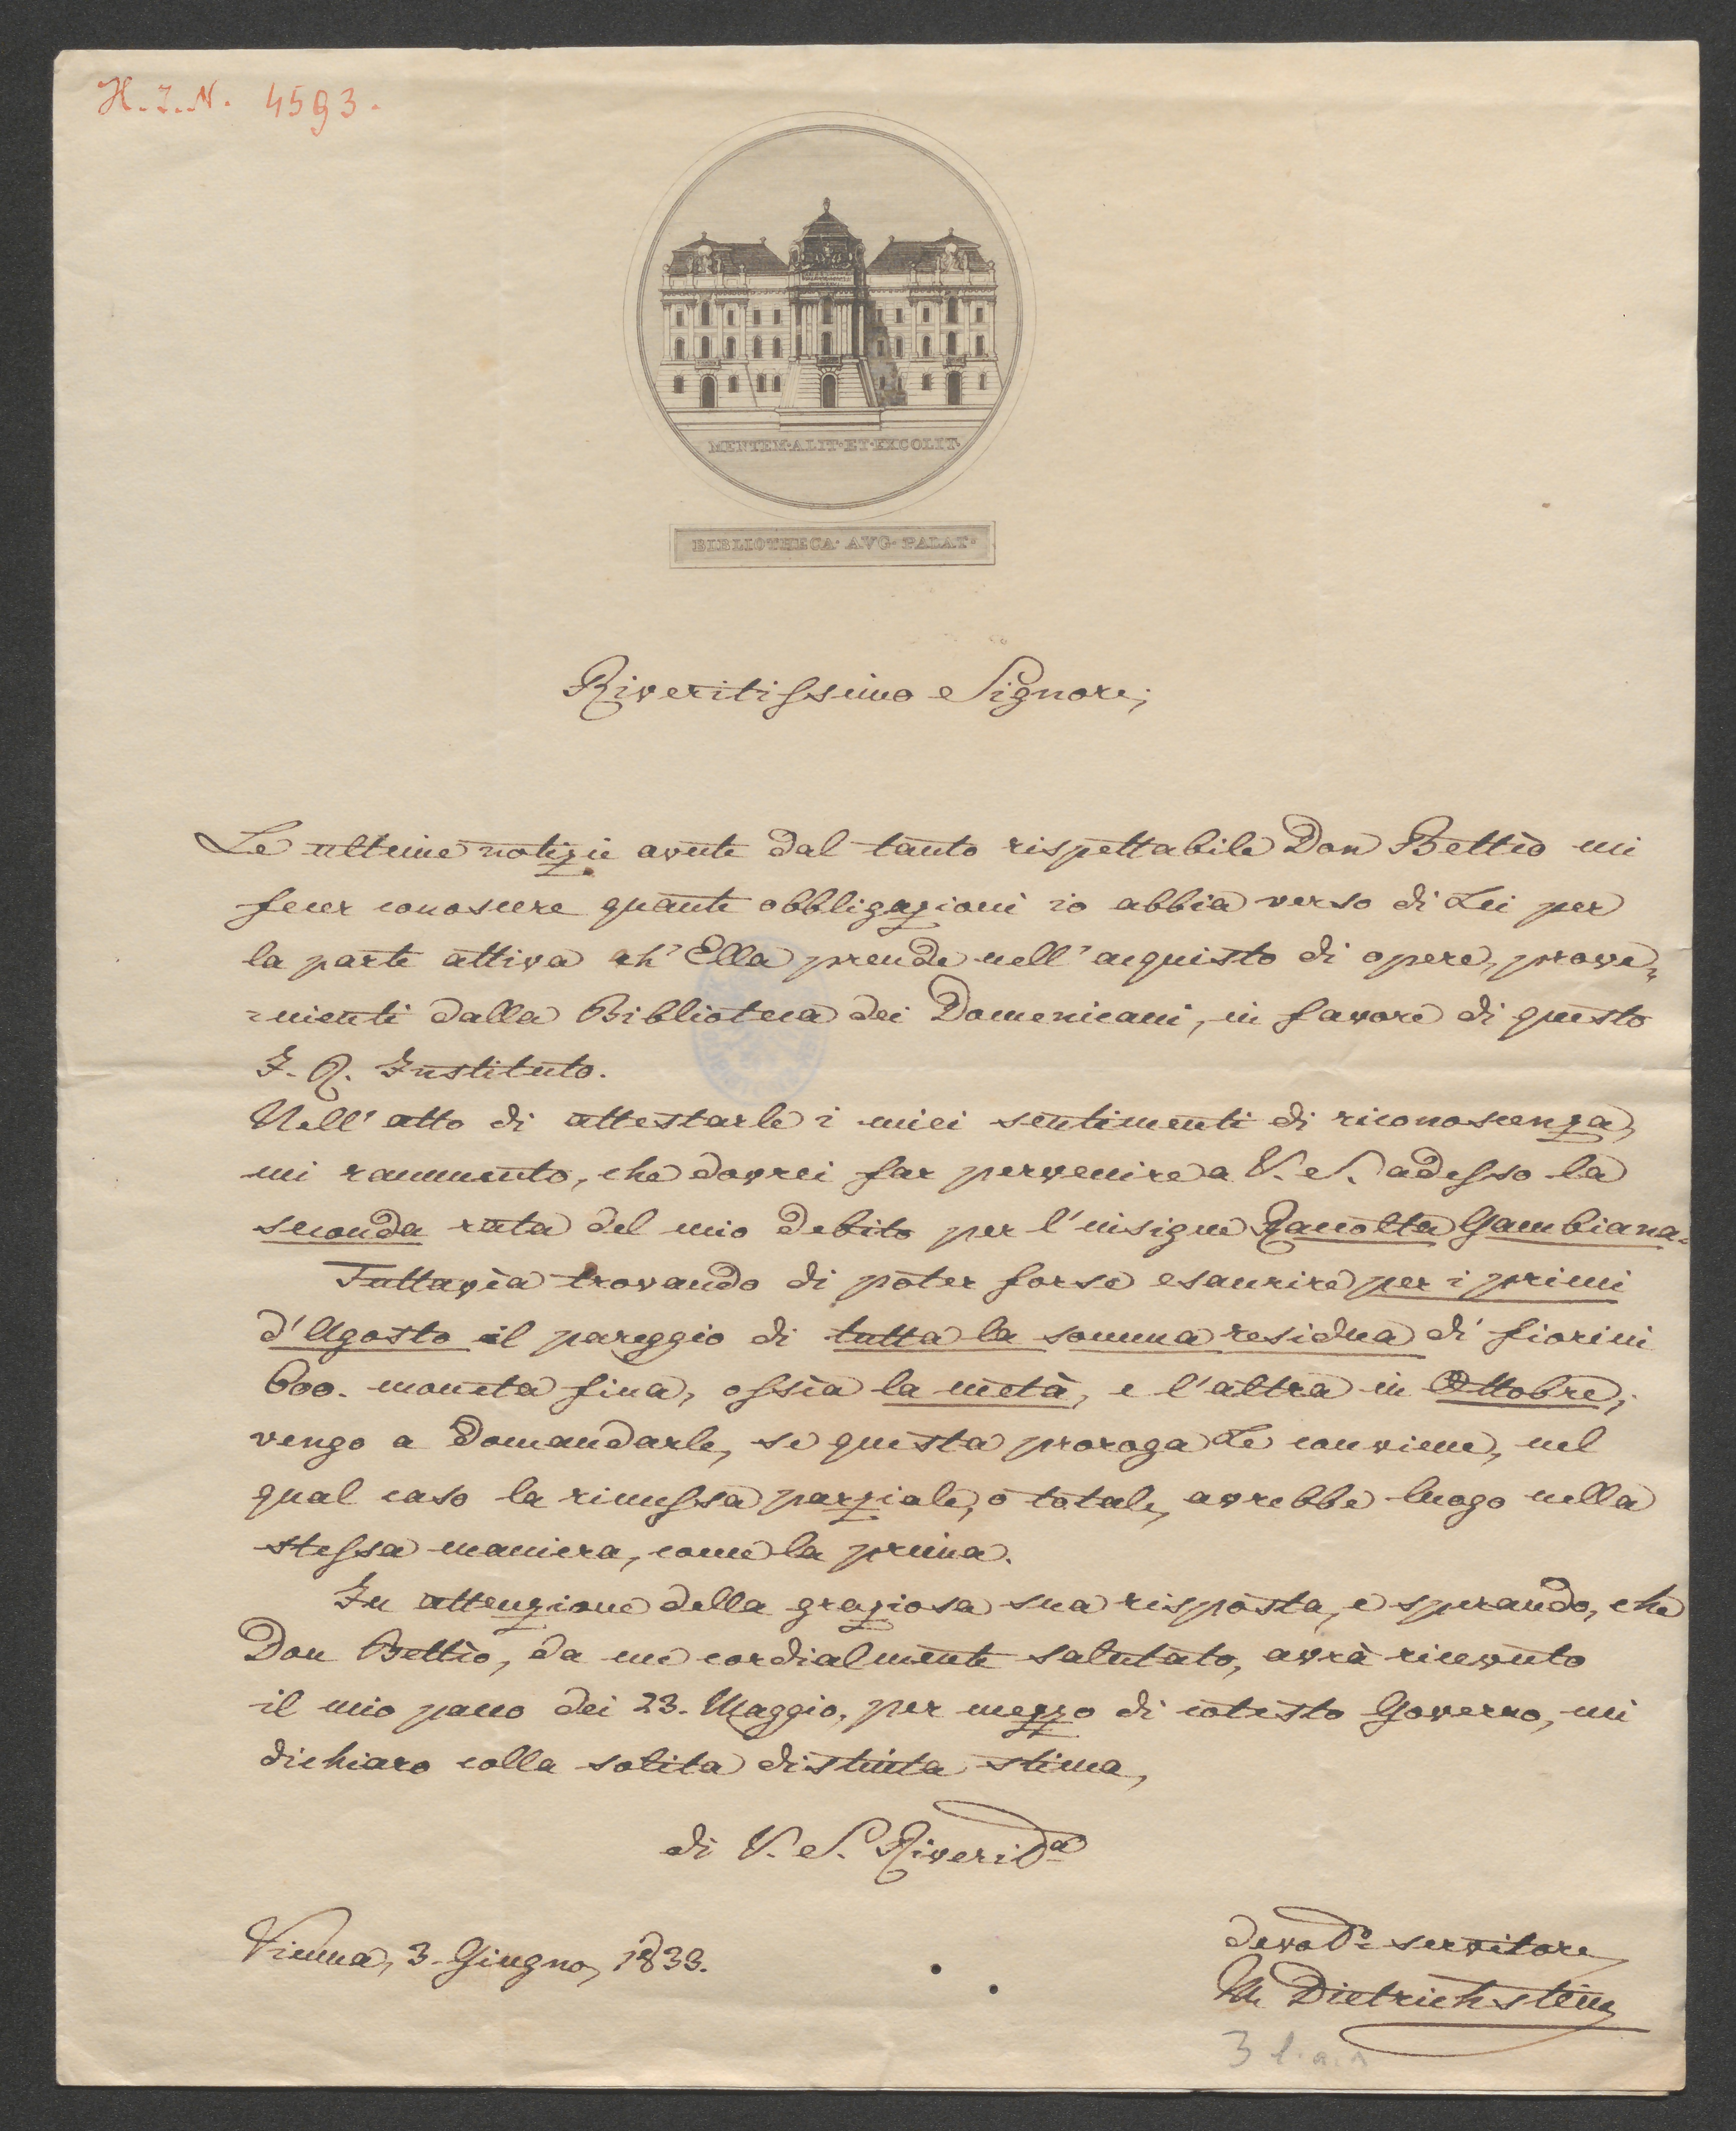 H. I. N. 4593.
MENTEM·ALIT·ET·EXCOLIT·
BIBLIOTHECA· AVG· PALAT·
Riveritissimo Signore;
Le ultime notizie avute dal tanto rispettabile Don Bettio mi
fecer conoscere quante obbligazioni io abbia verso di Lei per
la parte attiva ch' Ella prende nell' acquisto di opere, prove=
=nienti dalla Biblioteca dei Domenicani, in favore di questo
I. R. Instituto.
Nell' atto di attestarle i miei sentimenti di riconoscenza,
mi rammento, che dovrei far pervenire a V. S. adesso la
seconda rata del mio debito per l'insigne Raccolta Gambiana.
Tuttavia trovando di poter forse esaurire per i primi
d'Agosto il pareggio di tutta la somma residua di fiorini
600. moneta fina, ossia la metà, e l'altra in Ottobre;
vengo a domandarle, se questa proroga Le conviene, nel
qual caso la rimessa parziale, o totale, avrebbe luogo nella
stessa maniera, come la prima.
In attenzione della graziosa sua risposta, e sperando, che
Don Bettio, da me cordialmente salutato, avrà ricevuto
il mio pacco dei 23. Maggio, per mezzo di cotesto Governo, mi
dichiaro colla solita distinta stima,
di V. S. Riverida
Vienna, 3. Giugno, 1833.
devoto servitore
M Dietrichstein